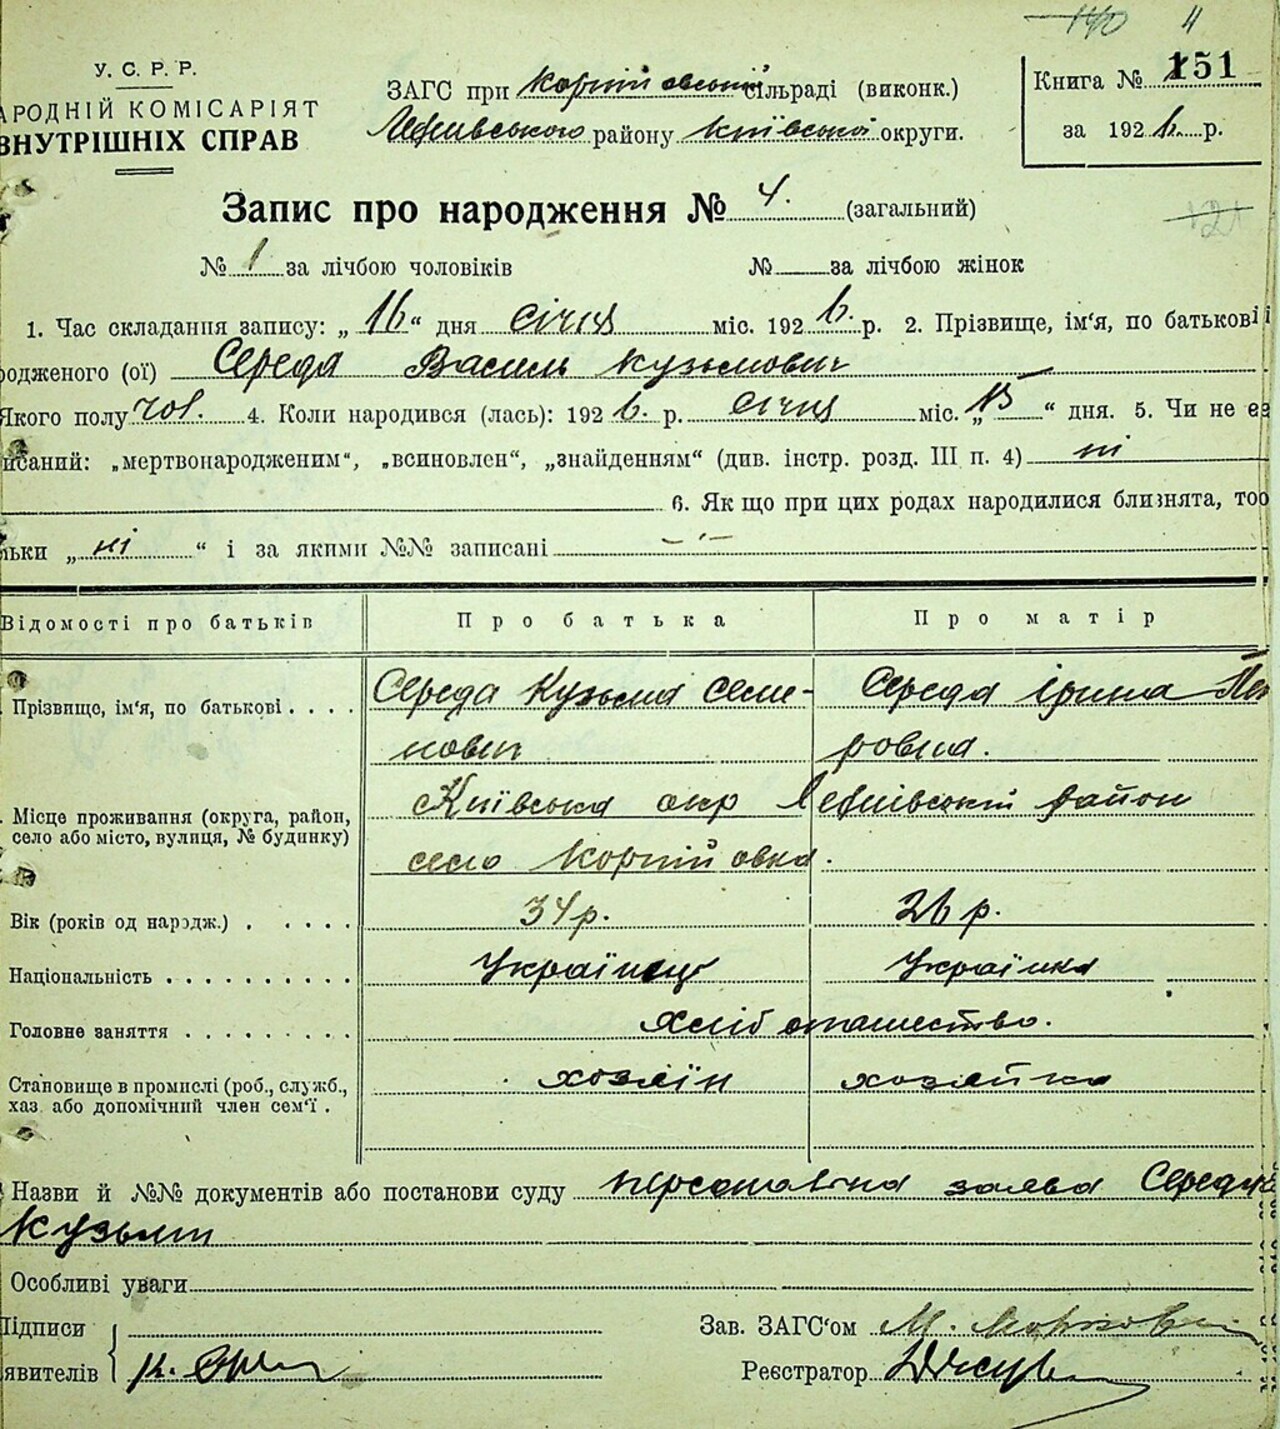 140 11
У. С. Р. Р.
АРОДНІЙ КОМІСАРІЯТ
ВНУТРІШНІХ СПРАВ
ЗАГС при Корніївській сільраді (виконк.)
району Київської округи.
Книга № 151
за 1926 р.
Запис про народження № 4. (загальний)
121
№ 1 за лічбою чоловіків № за лічбою жінок
1. Час складання запису: „ 16 “ дня січня міс. 1926. р. 2. Прізвище, ім‘я, по батькові і
родженого (ої) Середа Василь Кузьмович
Якого полу чол. 4. Коли народився (лась): 1926. р. січня міс. „ 15 “ дня. 5. Чи не є за
писаний: „мертвонародженим“, „всиновлен“, „знайденням“ (див. інстр. розд. III п. 4) ні
6. Як що при цих родах народилися близнята, то
льки „ ні “ і за якими №№ записані -'-
Відомості про батьків Про батька Про матір
Прізвище, ім‘я, по батькові . . . . Середа Кузьма Семе- Середа Ірина Пет
нович ровна.
Місце проживання (округа, район, село або місто, вулиця, № будинку) Київська окр район
село Корніївка.
Вік (років од народж.) . . . . . 34 р. 26 р.
Національність . . . . . . . . . . Українець Українка
Головне заняття . . . . . . . . . Хлібопашество.
Становище в промислі (роб., служб., хаз. або допомічний член сем‘ї . хозяїн хозяйка
Назви й №№ документів або постанови суду персональна заява Середи
Кузьми
Особливі уваги
Підписи
явителів К.
Зав. ЗАГС‘ом М.
Реєстратор